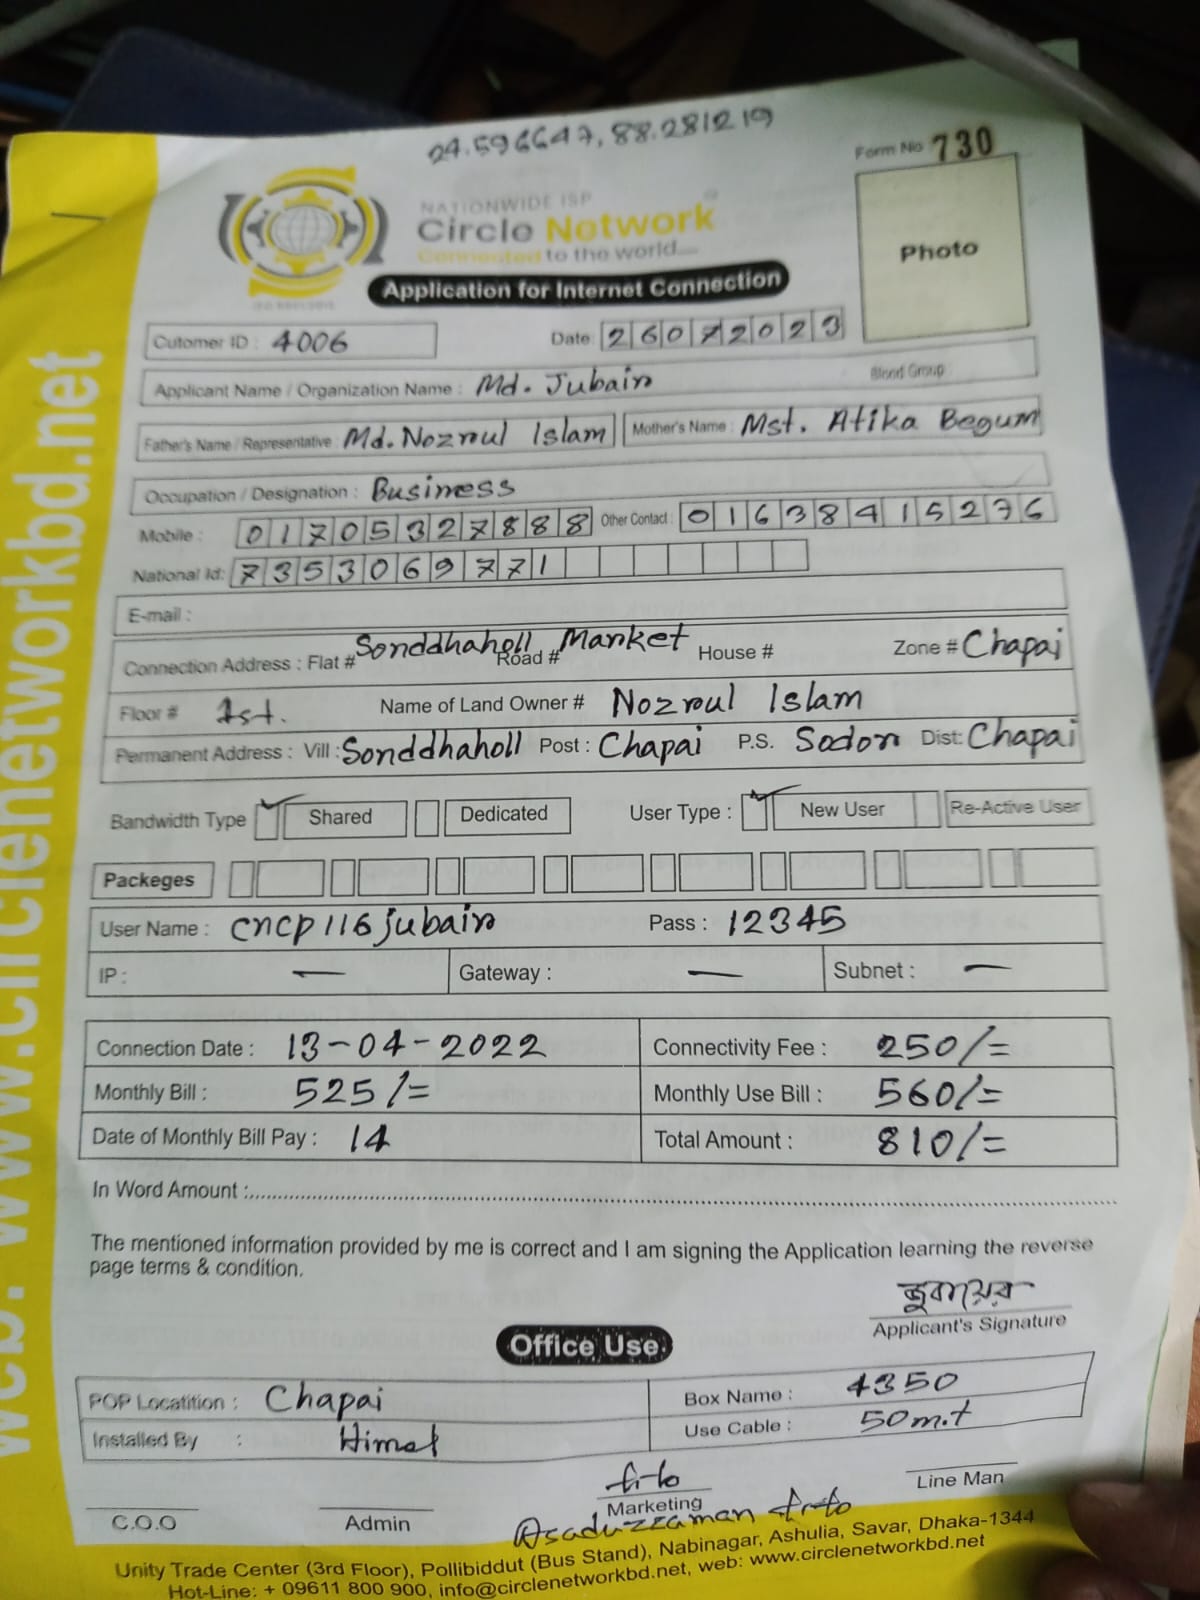 24.596647, 88.281219
Form No 730
NATIONWIDE ISP
Circle Network
Connected to the world....
Photo
Application for Internet Connection
Cutomer ID : 4006 Date: 26072023
Applicant Name / Organization Name : Md. Jubair Blood Group
Father's Name / Representative : Md. Nozroul Islam Mother's Name : Mst. Atika Begum
Occupation / Designation : Business
Mobile : 01705327888 Other Contact : 01638415276
National Id: 7353069771
E-mail :
Connection Address : Flat # Sonddhaholl Market Road # House # Zone # Chapai
Floor # 1st. Name of Land Owner # Nozroul Islam
Permanent Address : Vill : Sonddhaholl Post : Chapai P.S. Sodor Dist: Chapai
Bandwidth Type Shared Dedicated User Type : New User Re-Active User
Packeges
User Name : cncp116jubair Pass : 12345
IP : — Gateway : — Subnet : —
Connection Date : 13-04-2022 Connectivity Fee : 250/=
Monthly Bill : 525/= Monthly Use Bill : 560/=
Date of Monthly Bill Pay : 14 Total Amount : 810/=
In Word Amount :
The mentioned information provided by me is correct and I am signing the Application learning the reverse
page terms & condition.
জুবায়ের
Applicant's Signature
Office Use
POP Locatition : Chapai Box Name : 4350
Installed By : Himel Use Cable : 50m.t
C.O.O Admin Marketing Line Man
Asaduzzaman
Unity Trade Center (3rd Floor), Pollibiddut (Bus Stand), Nabinagar, Ashulia, Savar, Dhaka-1344
Hot-Line: + 09611 800 900, info@circlenetworkbd.net, web: www.circlenetworkbd.net
web: www.circlenetworkbd.net